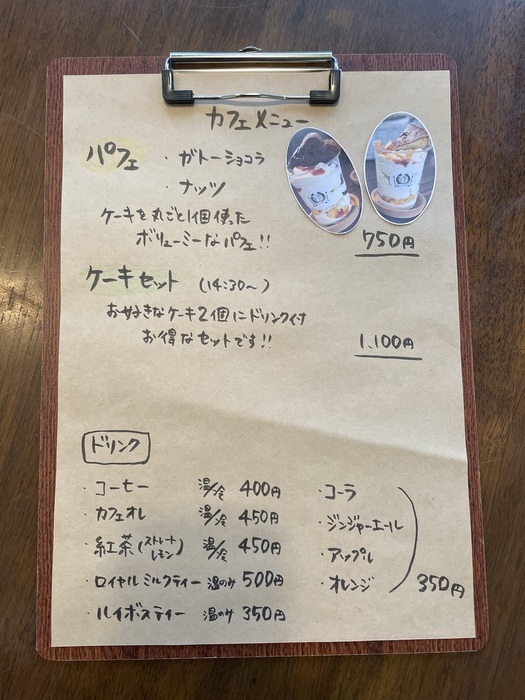 カフェメニュー
パフェ ・ガトーショコラ
・ナッツ
ケーキを丸ごと1個使った
ボリューミーなパフェ!!
750円
ケーキセット (14:30〜)
お好きなケーキ2個にドリンク付
お得なセットです!!
1,100円
ドリンク
・コーヒー 温/冷 400円
・カフェオレ 温/冷 450円
・紅茶(ストレート レモン) 温/冷 450円
・ロイヤルミルクティー 温のみ 500円
・ルイボスティー 温のみ 350円
・コーラ
・ジンジャーエール
・アップル
・オレンジ
350円